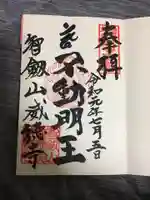 奉拝
令和元年七月五日
不動明王
智劔山威徳寺